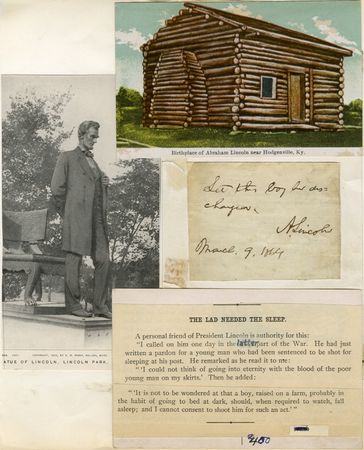 Birthplace of Abraham Lincoln near Hodgenville, Ky.
Let this boy be dis-
charged.
A. Lincoln
March 9, 1864
ATUE OF LINCOLN, LINCOLN PARK,
THE LAD NEEDED THE SLEEP.
A personal friend of President Lincoln is authority for this:
"I called on him one day in the latter part of the War. He had just
written a pardon for a young man who had been sentenced to be shot for
sleeping at his post. He remarked as he read it to me:
"'I could not think of going into eternity with the blood of the poor
young man on my skirts.' Then he added:
"'It is not to be wondered at that a boy, raised on a farm, probably in
the habit of going to bed at dark, should, when required to watch, fall
asleep; and I cannot consent to shoot him for such an act.'"